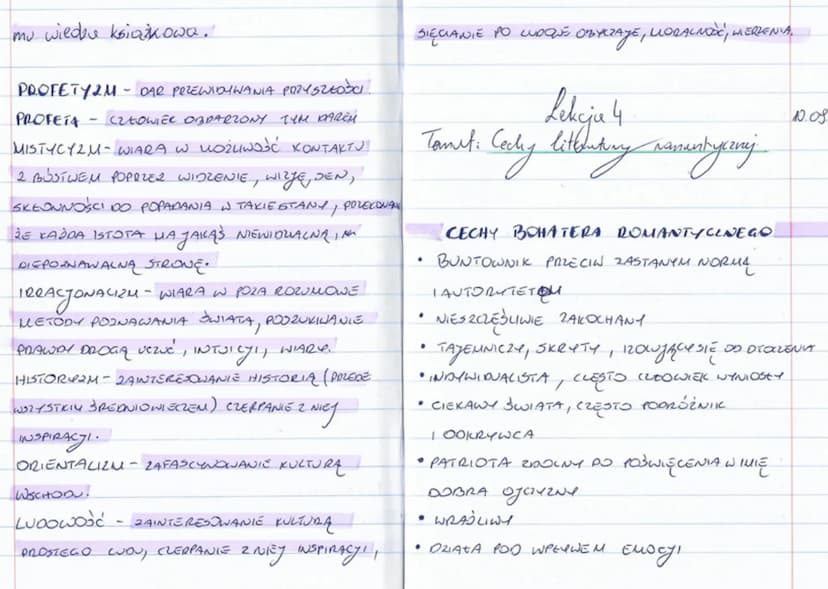 mu wiedzę książkową.
PROFETYZM - DAR PRZEWIDYWANIA PRZYSZŁOŚCI.
PROFETA - CZŁOWIEK OBDARZONY TYM DAREM
MISTYCYZM - WIARA W MOŻLIWOŚĆ KONTAKTU
Z BÓSTWEM POPRZEZ WIDZENIE, WIZJĘ, SEN,
SKŁONNOŚCI DO POPADANIA W TAKIE STANY, PRZEKONANIE
ŻE KAŻDA ISTOTA MA JAKĄŚ NIEWIDZIALNĄ,
NIEPOZNAWALNĄ STRONĘ.
IRRACJONALIZM - WIARA W POZA ROZUMOWE
METODY POZNAWANIA ŚWIATA, POSZUKIWANIE
PRAWDY DROGĄ UCZUĆ, INTUICJI, WIARY.
HISTORYZM - ZAINTERESOWANIE HISTORIĄ (PRZEDE
WSZYSTKIM ŚREDNIOWIECZEM) CZERPANIE Z NIEJ
INSPIRACJI.
ORIENTALIZM - ZAFASCYNOWANIE KULTURĄ
WSCHODU.
LUDOWOŚĆ - ZAINTERESOWANIE KULTURĄ
PROSTEGO LUDU, CZERPANIE Z NIEJ INSPIRACJI,
SIĘGANIE PO LUDOWE OBYCZAJE, MORALNOŚĆ, WIERZENIA.
Lekcja 4
10.09
Temat: Cechy literatury romantycznej
CECHY BOHATERA ROMANTYCZNEGO
• BUNTOWNIK PRZECIW ZASTANYM NORMĄ
I AUTORYTETOM
• NIESZCZĘŚLIWIE ZAKOCHANY
• TAJEMNICZY, SKRYTY, IZOLUJĄCY SIĘ OD OTOCZENIA
• INDYWIDUALISTA, CZĘSTO CZŁOWIEK WYNIOSŁY
• CIEKAWY ŚWIATA, CZĘSTO PODRÓŻNIK
I ODKRYWCA
• PATRIOTA ZDOLNY DO POŚWIĘCENIA W IMIĘ
DOBRA OJCZYZNY
• WRAŻLIWY
• DZIAŁA POD WPŁYWEM EMOCJI